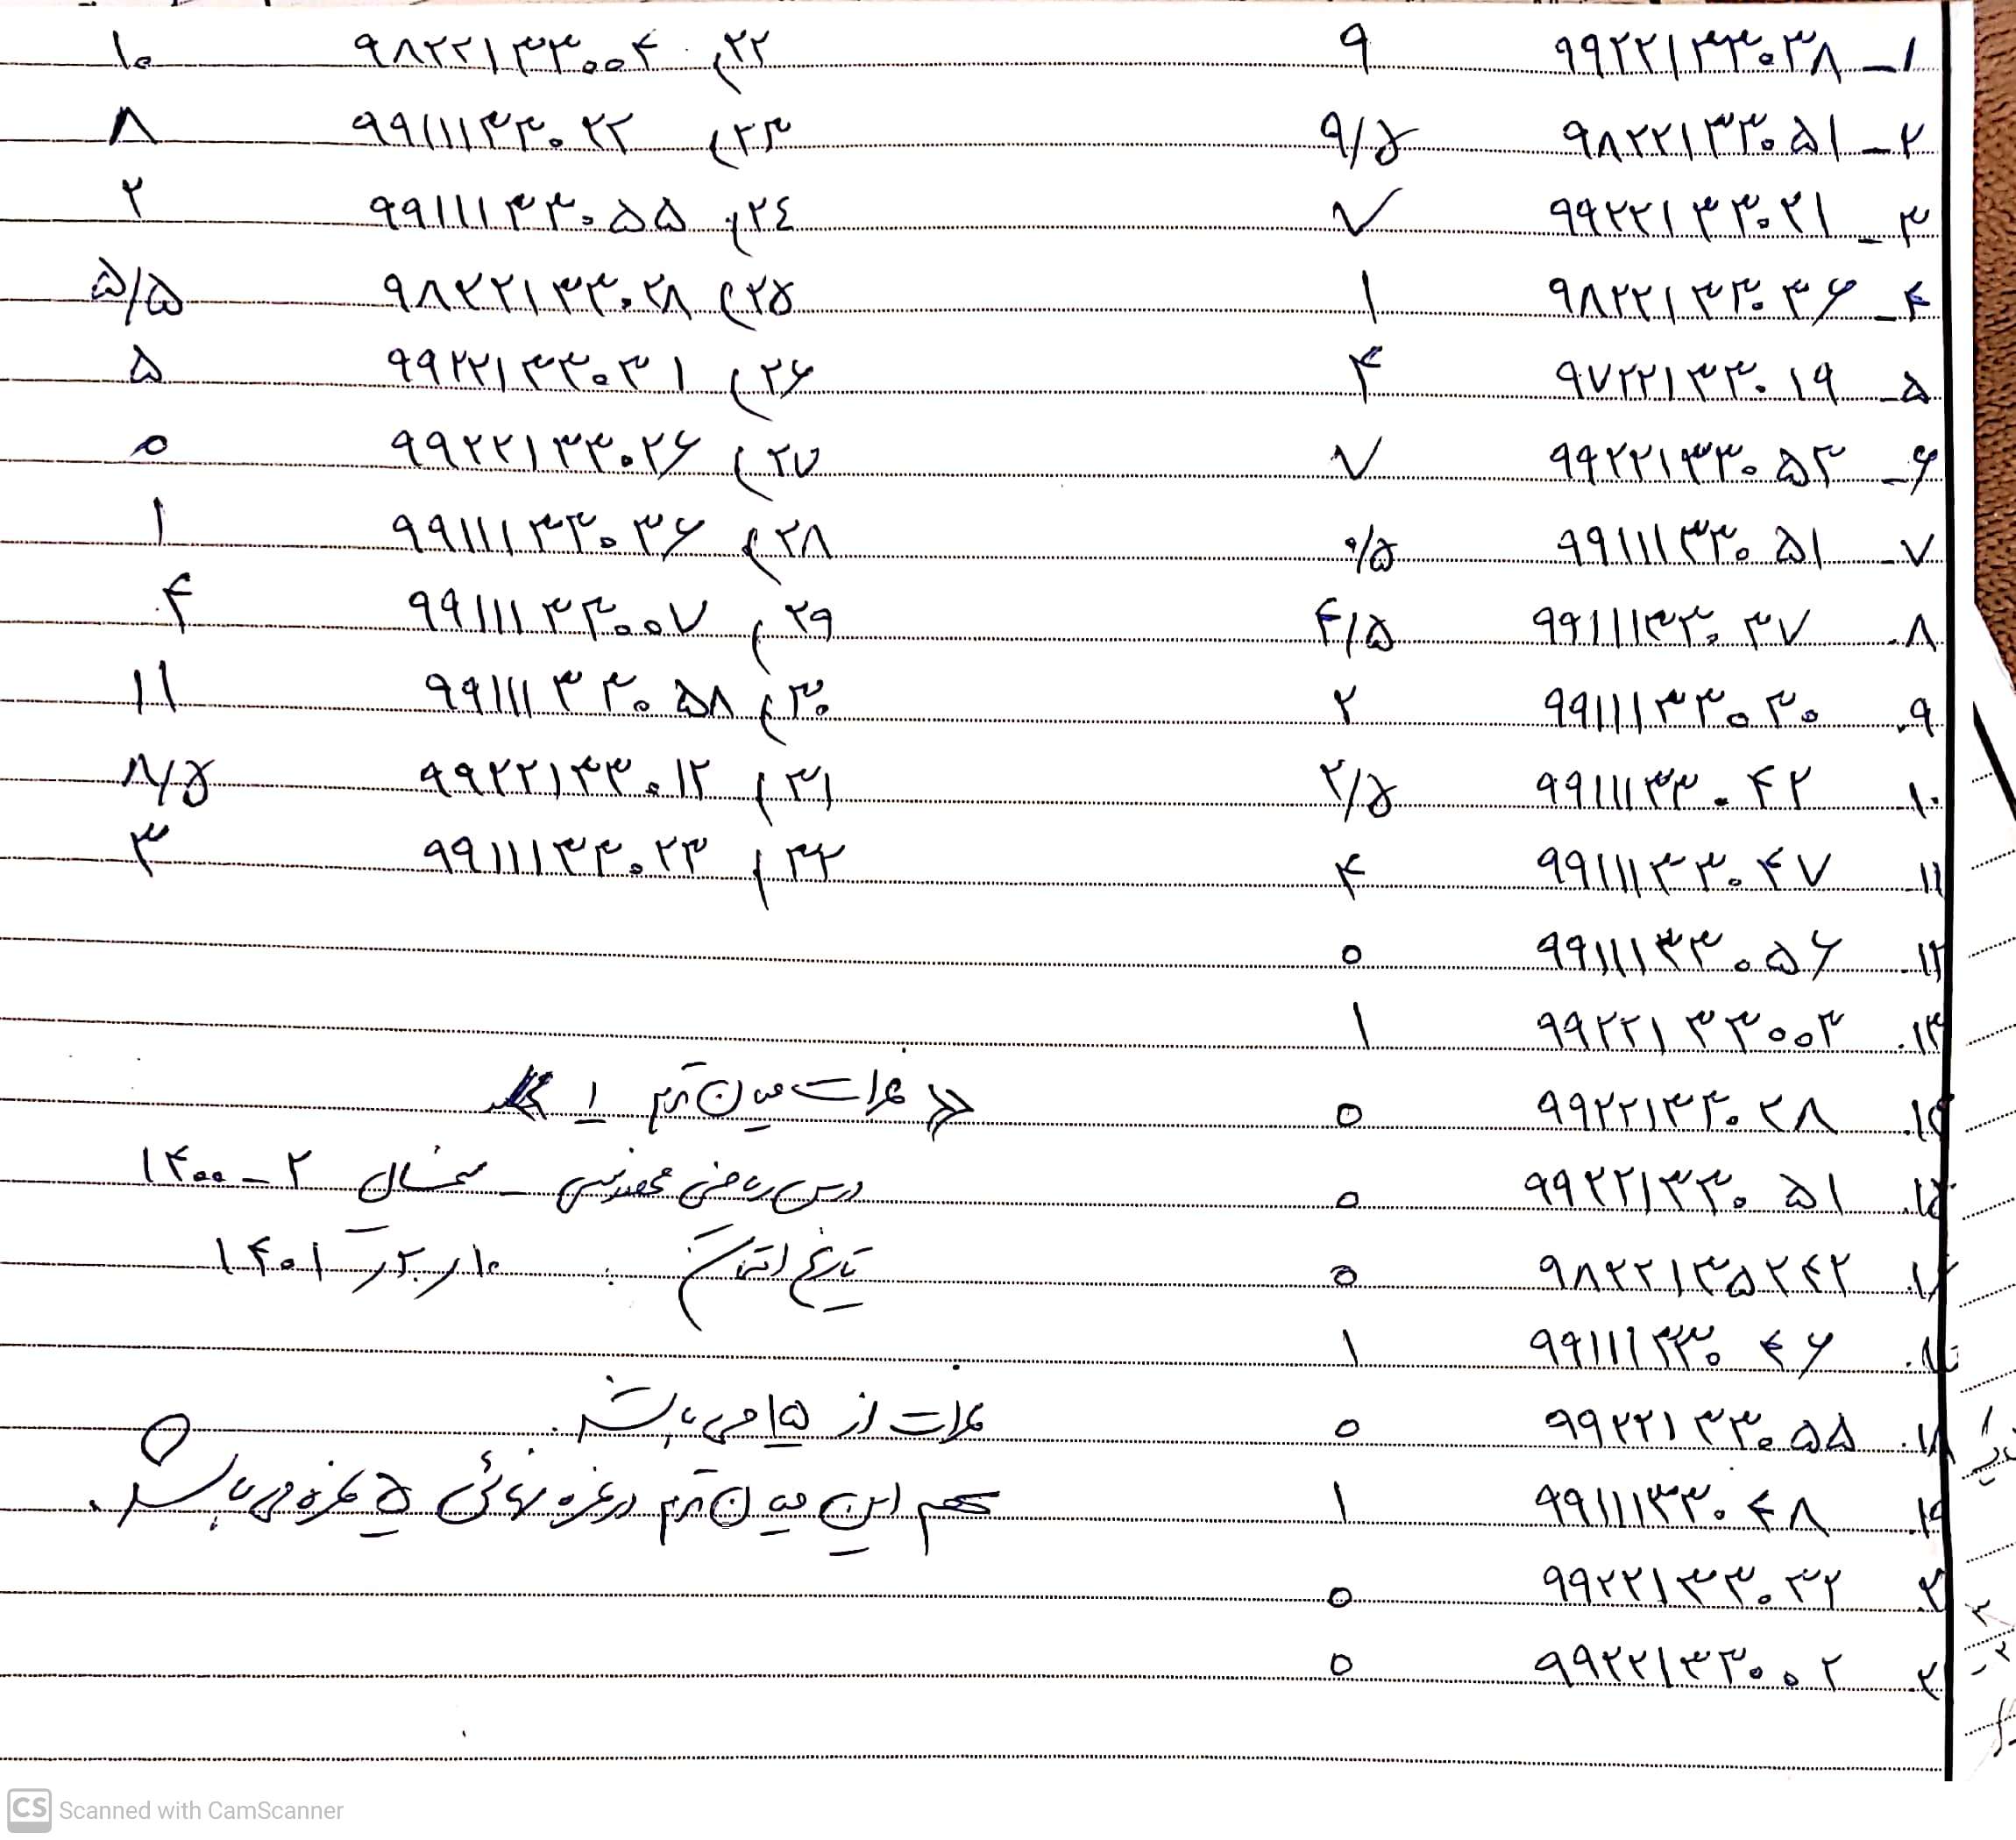 ۱- ۹۹۲۲۱۳۳۰۳۸ ۹
۲- ۹۸۲۲۱۳۳۰۵۱ ۹/۵
۳- ۹۹۲۲۱۳۳۰۲۱ ۷
۴- ۹۸۲۲۱۳۳۰۳۶ ۱
۵- ۹۷۲۲۱۳۳۰۱۹ ۴
۶- ۹۹۲۲۱۳۳۰۵۳ ۷
۷- ۹۹۱۱۱۳۳۰۵۱ ۰/۵
۸- ۹۹۱۱۱۳۳۰۳۷ ۴/۵
۹- ۹۹۱۱۱۳۳۰۳۰ ۲
۱۰- ۹۹۱۱۱۳۳۰۴۲ ۲/۵
۱۱- ۹۹۱۱۱۳۳۰۴۷ ۴
۱۲- ۹۹۱۱۱۳۳۰۵۶ ۰
۱۳- ۹۹۲۲۱۳۳۰۰۳ ۱
۱۴- ۹۹۲۲۱۳۳۰۲۸ ۰
۱۵- ۹۹۲۲۱۳۳۰۵۱ ۰
۱۶- ۹۸۲۲۱۳۵۲۴۲ ۰
۱۷- ۹۹۱۱۱۳۳۰۴۶ ۱
۱۸- ۹۹۲۲۱۳۳۰۵۵ ۰
۱۹- ۹۹۱۱۱۳۳۰۴۸ ۱
۹۹۲۲۱۳۳۰۳۲ ۰
۹۹۲۲۱۳۳۰۰۲ ۰
۲۲) ۹۸۲۲۱۳۳۰۰۴ ۱۰
۲۳) ۹۹۱۱۱۳۳۰۲۲ ۸
۲۴) ۹۹۱۱۱۳۳۰۵۵ ۲
۲۵) ۹۸۲۲۱۳۳۰۲۸ ۵/۵
۲۶) ۹۹۲۲۱۳۳۰۳۱ ۵
۲۷) ۹۹۲۲۱۳۳۰۲۶ ۰
۲۸) ۹۹۱۱۱۳۳۰۳۶ ۱
۲۹) ۹۹۱۱۱۳۳۰۰۷ ۴
۳۰) ۹۹۱۱۱۳۳۰۵۸ ۱۱
۳۱) ۹۹۲۲۱۳۳۰۱۲ ۸/۵
۳۲) ۹۹۱۱۱۳۳۰۲۳ ۳
نمرات میان ترم ۱
درس ریاضی مهندسی - نیمسال ۲-۱۴۰۰
تاریخ امتحان: ۱۰ر ۲ر ۱۴۰۱
نمرات از ۱۵ می باشد.
سهم این میان ترم در نمره نهائی ۵ نمره می باشد.
Scanned with CamScanner